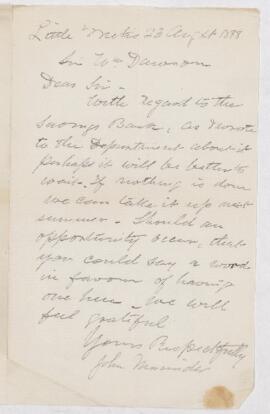 Little Metis 23 Augst 1898
Sir Wm Dawson
Dear Sir -
With regard to the
Savings Bank, as I wrote
to the Department about it
perhaps it will be better to
wait. If nothing is done
we can take it up next
summer - Should an
opportunity occur, that
you could say a word
in favour of having
one here - we will
feel grateful
Yours Respectfully
John